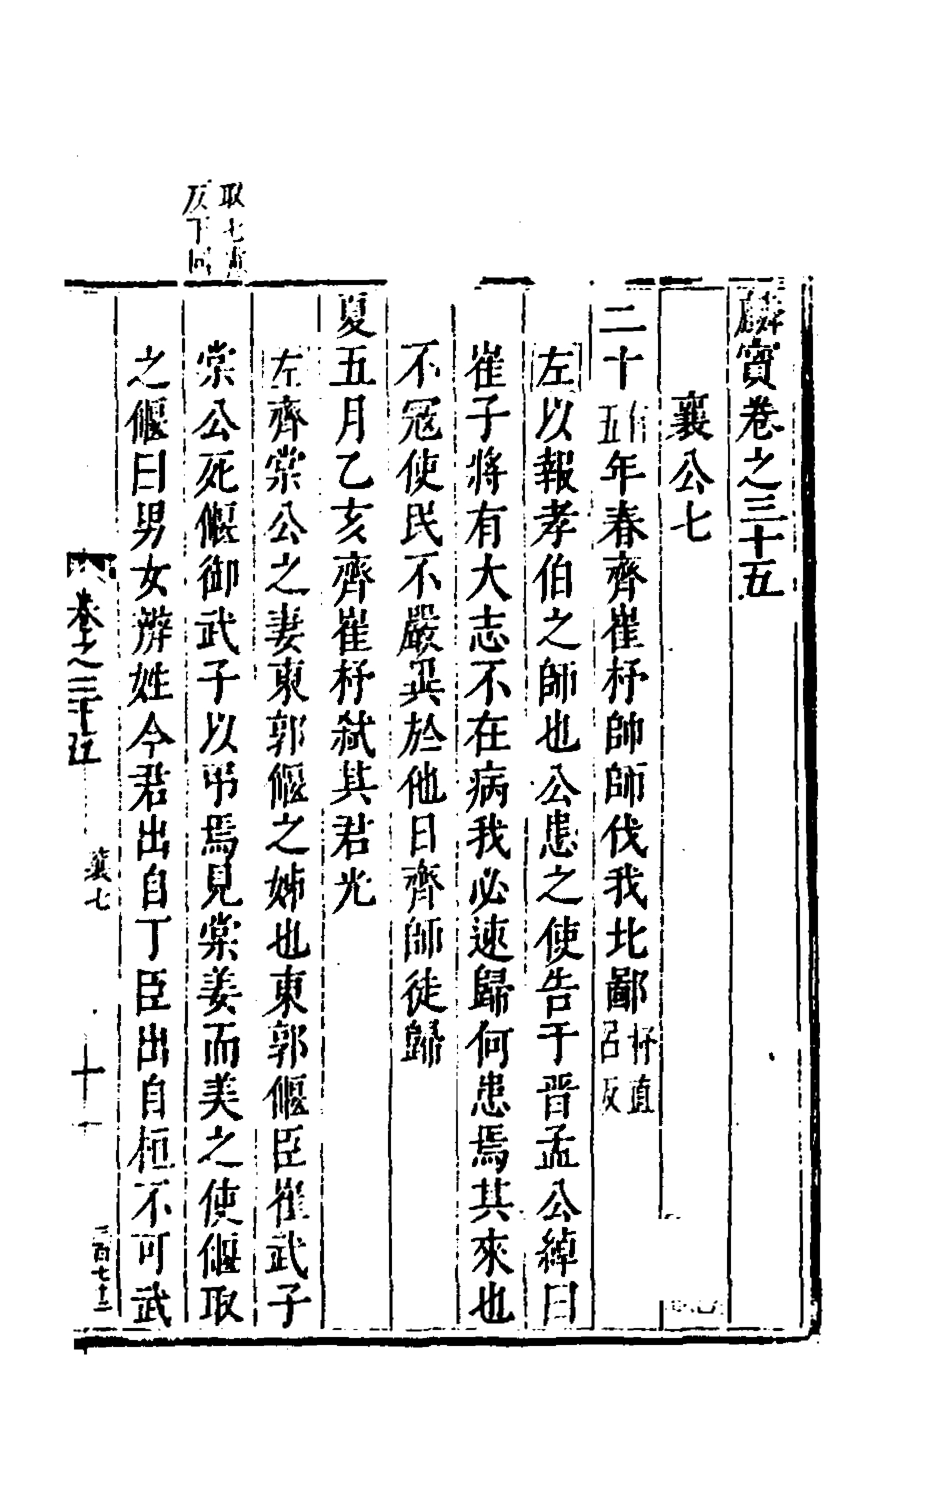 麟寳卷之三十五
襄公七
二十有五年春齊崔杼帥師伐我北鄙杼直呂反
左以報孝伯之師也公患之使告于晋孟公綽曰
崔子將有大志不在病我必速歸何患焉其來也
不冦使民不嚴異於他日齊師徒歸
夏五月乙亥齊崔杼弑其君光
左齊棠公之妻東郭偃之姊也東郭偃臣崔武子
取七
反下同
棠公死偃御武子以弔焉見棠姜而美之使偃取
之偃曰男女辨姓今君出自丁臣出自桓不可武
卷之三十五
襄七
十一